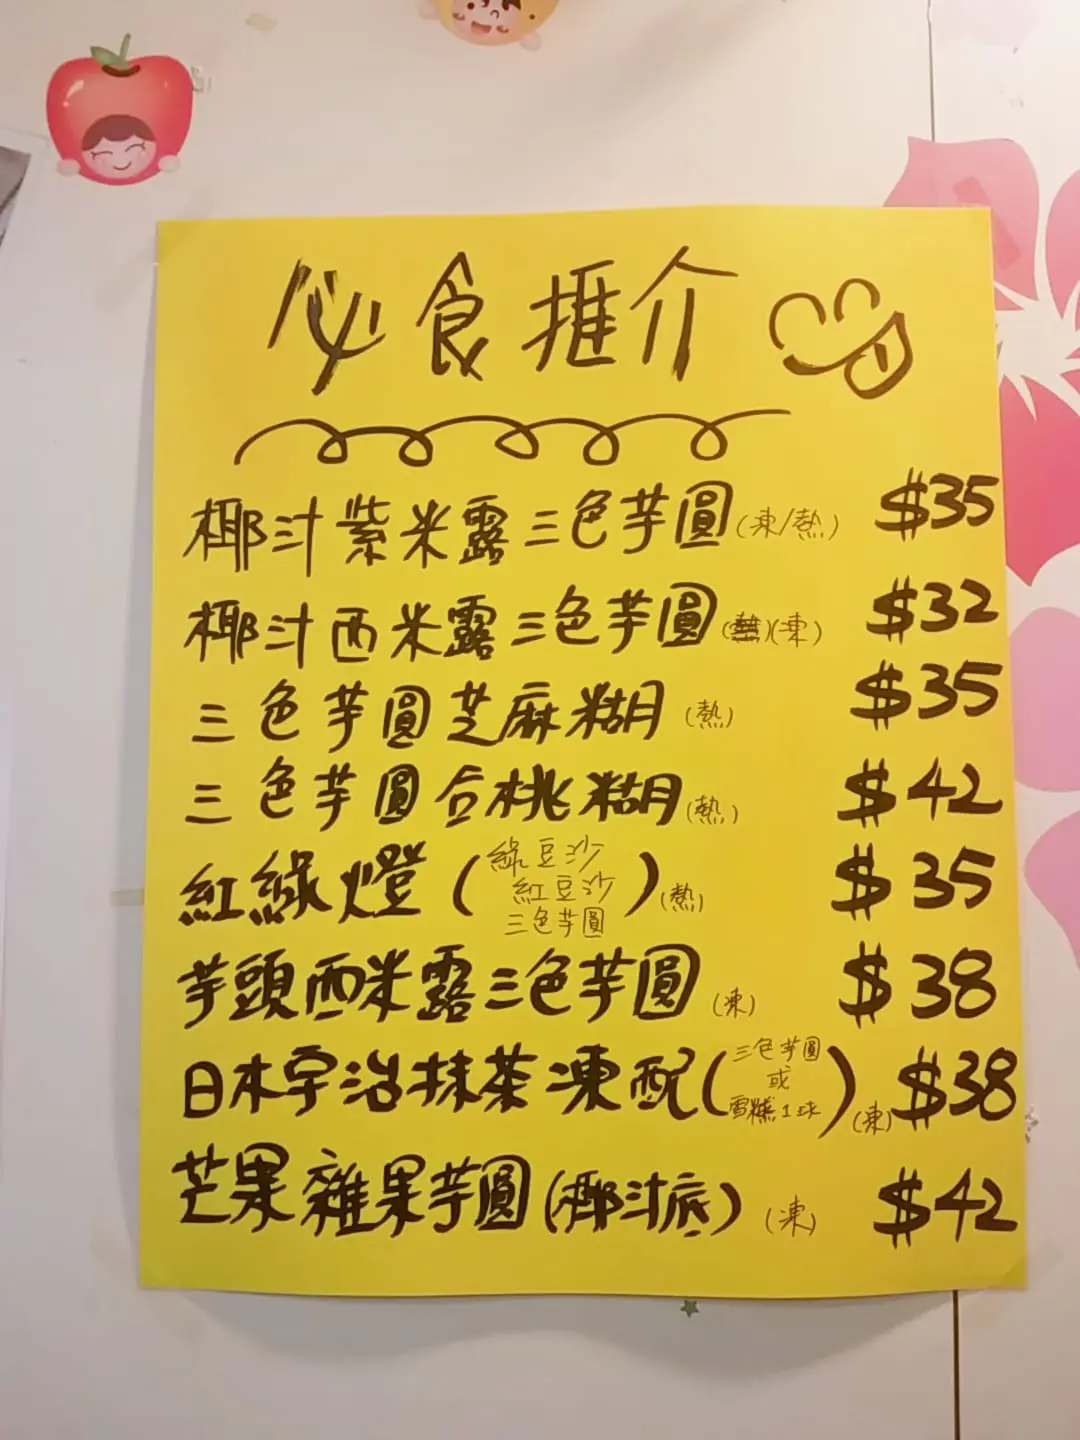 必食推介
椰汁紫米露三色芋圓(凍/熱) $35
椰汁西米露三色芋圓(熱)(凍) $32
三色芋圓芝麻糊(熱) $35
三色芋圓合桃糊(熱) $42
紅綠燈(綠豆沙 紅豆沙 三色芋圓)(熱) $35
芋頭西米露三色芋圓(凍) $38
日本宇治抹茶凍配(三色芋圓 或 雪糕1球)(凍) $38
芒果雜果芋圓(椰汁底)(凍) $42